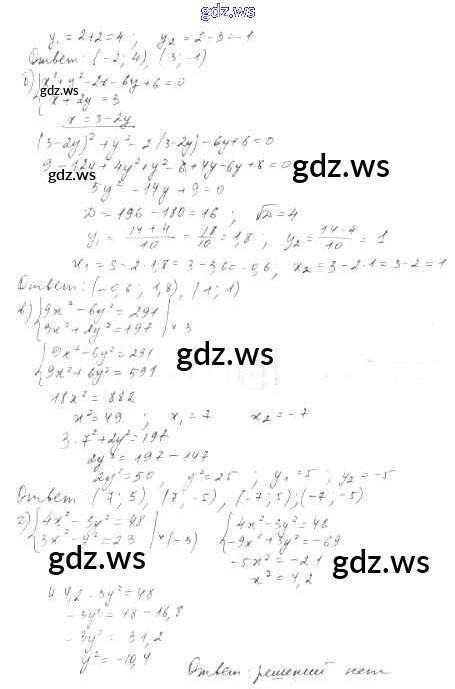 gdz.ws
y₁ = 2+2=4 ; y₂ = 2-3=-1
Ответ: (-2; 4), (3; -1)
б) { x²+y²-2x-6y+6=0
x+2y=3
gdz.ws
x = 3-2y
(3-2y)²+y²-2(3-2y)-6y+6=0
9-12y+4y²+y²-6+4y-6y+6=0
gdz.ws
gdz.ws
5y²-14y+9=0
D = 196-180=16 ; √D=4
y₁ = (14+4)/10 = 18/10 = 1,8 ; y₂ = (14-4)/10 = 1
x₁ = 3-2·1,8 = 3-3,6=-0,6 ; x₂ = 3-2·1=3-2=1
Ответ: (-0,6; 1,8), (1; 1)
в) { 9x²-6y²=291
3x²+2y²=197 | ·3
gdz.ws
{ 9x²-6y²=291
9x²+6y²=591
18x² = 882
x²=49 ; x₁=7 x₂=-7
gdz.ws
3·7²+2y²=197
2y² = 197-147
2y²=50, y²=25 ; y₁=5 ; y₂=-5
Ответ (7; 5), (7; -5), (-7; 5); (-7; -5)
г) { 4x²-3y²=48 { 4x²-3y²=48
3x²-y²=23 | ·(-3) -9x²+3y²=-69
gdz.ws
-5x²=-21
x²=4,2
gdz.ws
4·4,2-3y²=48
-3y²=48-16,8
-3y²=31,2
y²=-10,4
Ответ: решений нет
gdz.ws